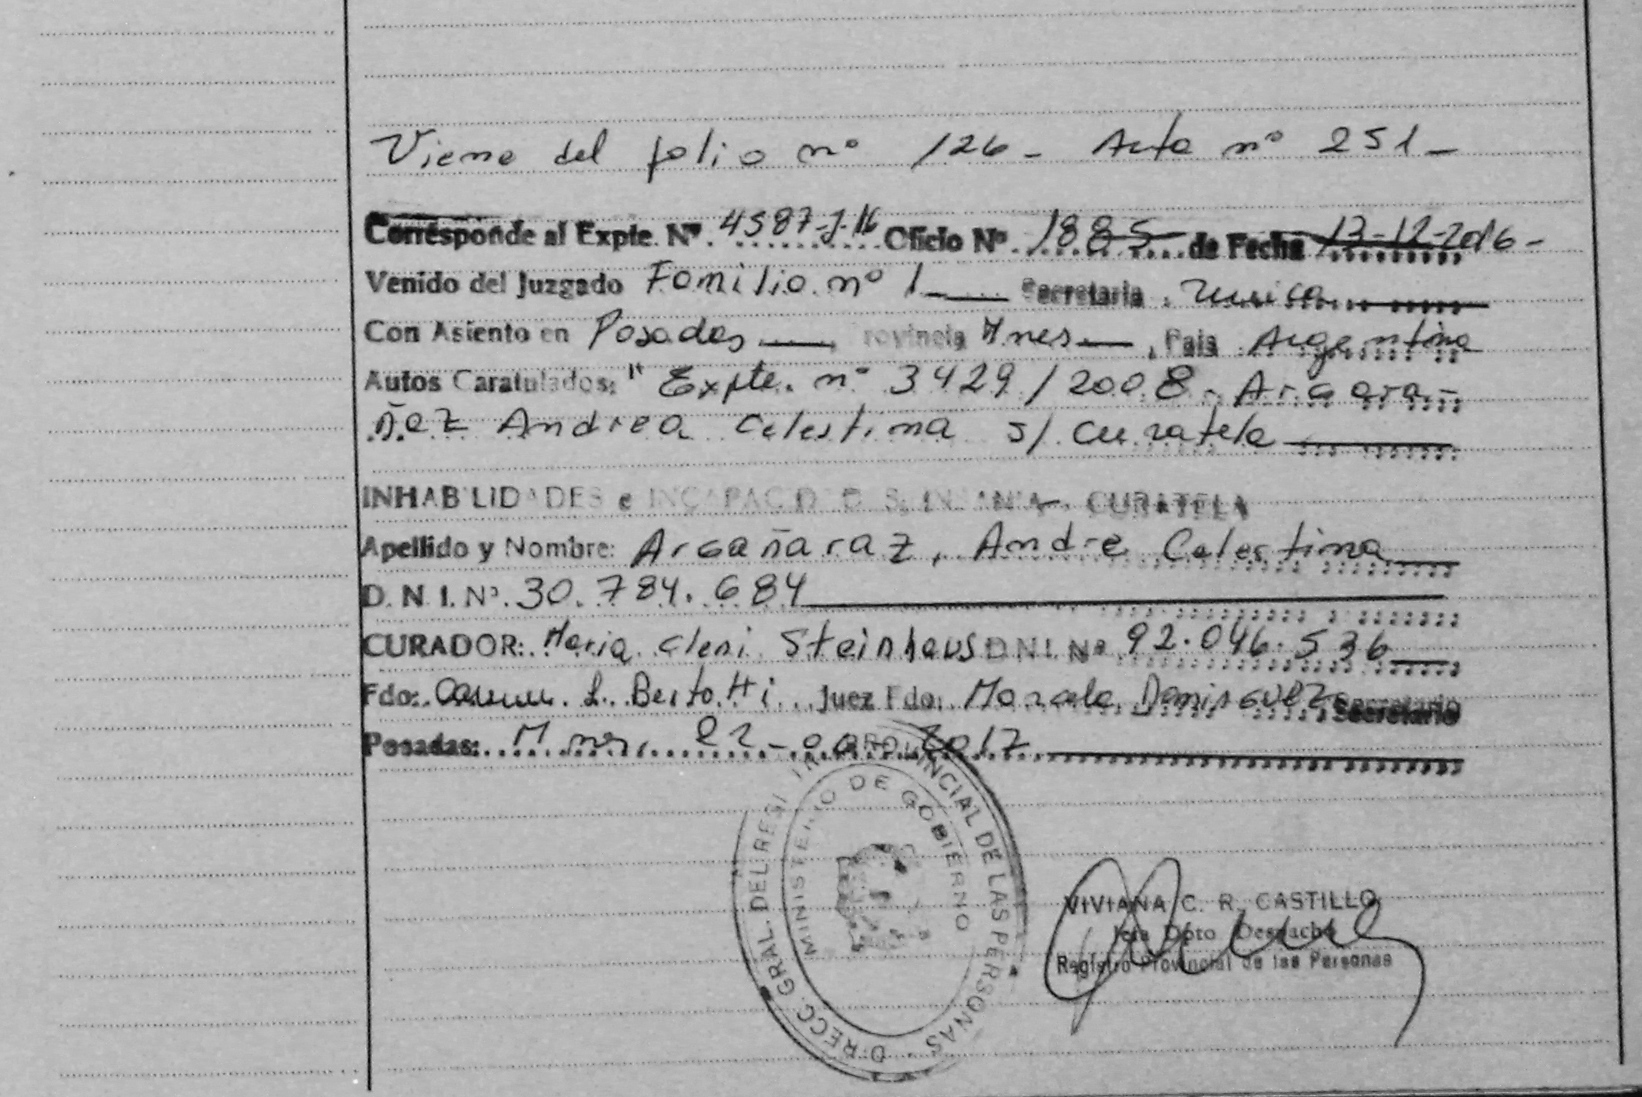 Viene del folio nº 126 - Acta nº 251 -
Corresponde al Expte. Nº 4587-J-16 Oficio Nº 1885 de Fecha 13-12-2016 -
Venido del Juzgado Familia nº 1 Secretaria Unica
Con Asiento en Posadas rovincia Mnes , Pais Argentina
Autos Caratulados: " Expte. nº 3429/2008 - Argara-
ñaz Andrea Celestina s/ Curatela
INHABILIDADES e INCAPACID D S, IN ANIA CURATELA
Apellido y Nombre: Argañaraz, Andre Celestina
D. N. I. Nº. 30.784.684
CURADOR: Maria Cleni Steinhaus D.N.I. Nº 92.046.536
Fdo: L. Bertotti Juez Fdo: Marcela Dominguez Secretario
Posadas: Mnes, 22- 2017
DIRECC. GRAL. DEL REGI PROVINCIAL DE LAS PERSONAS
MINISTERIO DE GOBIERNO
VIVIANA C. R. CASTILLO
Jefa Dpto Despacho
Registro Provincial de las Personas